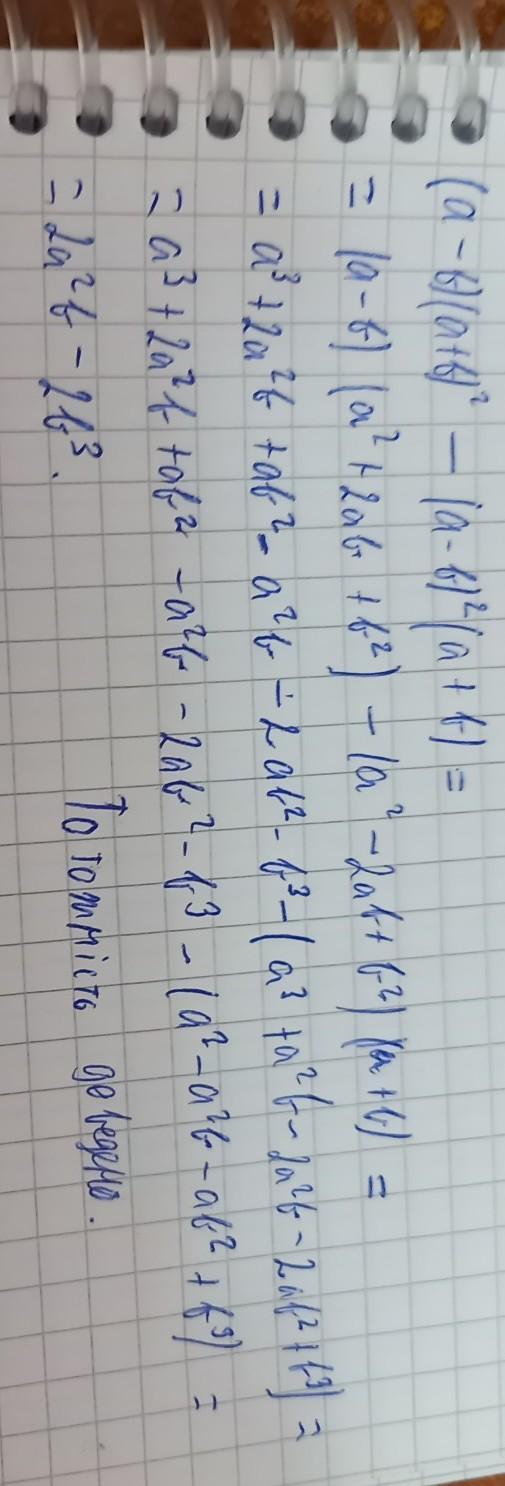 (a-b)(a+b)² - (a-b)²(a+b) =
= (a-b) (a²+2ab+b²) - (a²-2ab+b²) (a+b) =
= a³+2a²b+ab²-a²b-2ab²-b³-(a³+a²b-2a²b-2ab²+b³) =
= a³+2a²b+ab²-a²b-2ab²-b³-(a²-a²b-ab²+b³) =
= 2a²b-2b³.
Тотожність доведено.